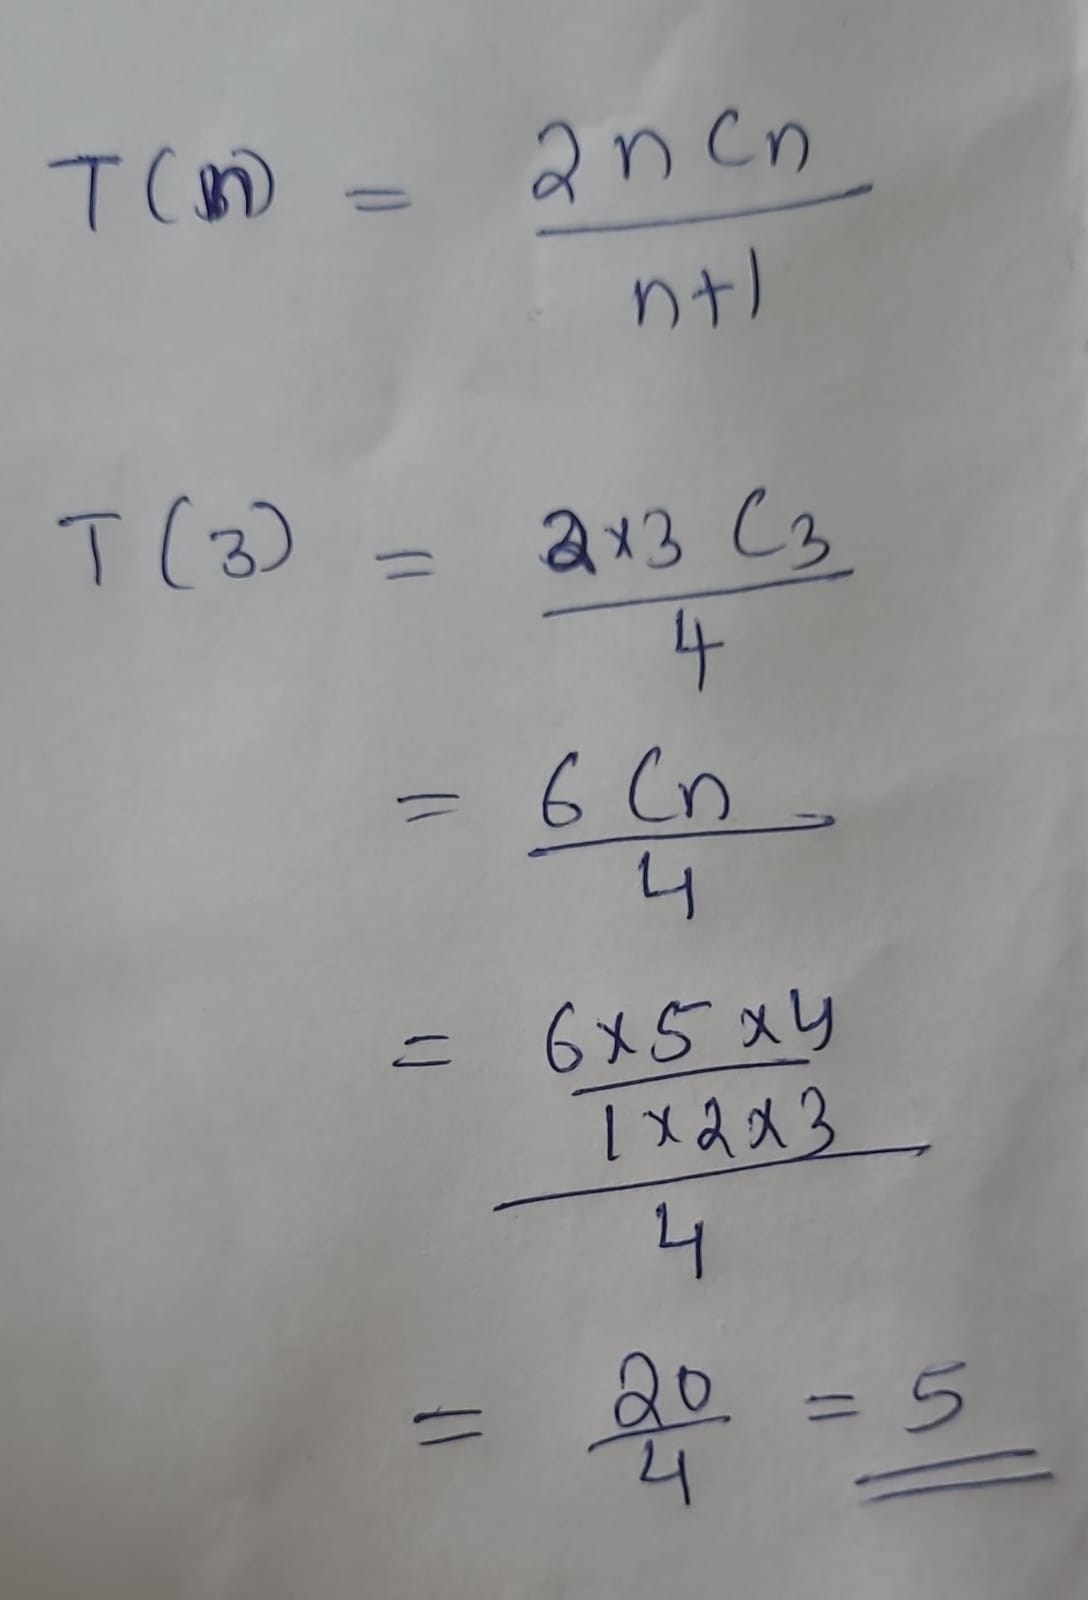 T(n) = 2nCn
n+1
T(3) = 2×3 C3
4
= 6 Cn
4
= 6×5×4
1×2×3
4
= 20 = 5
4